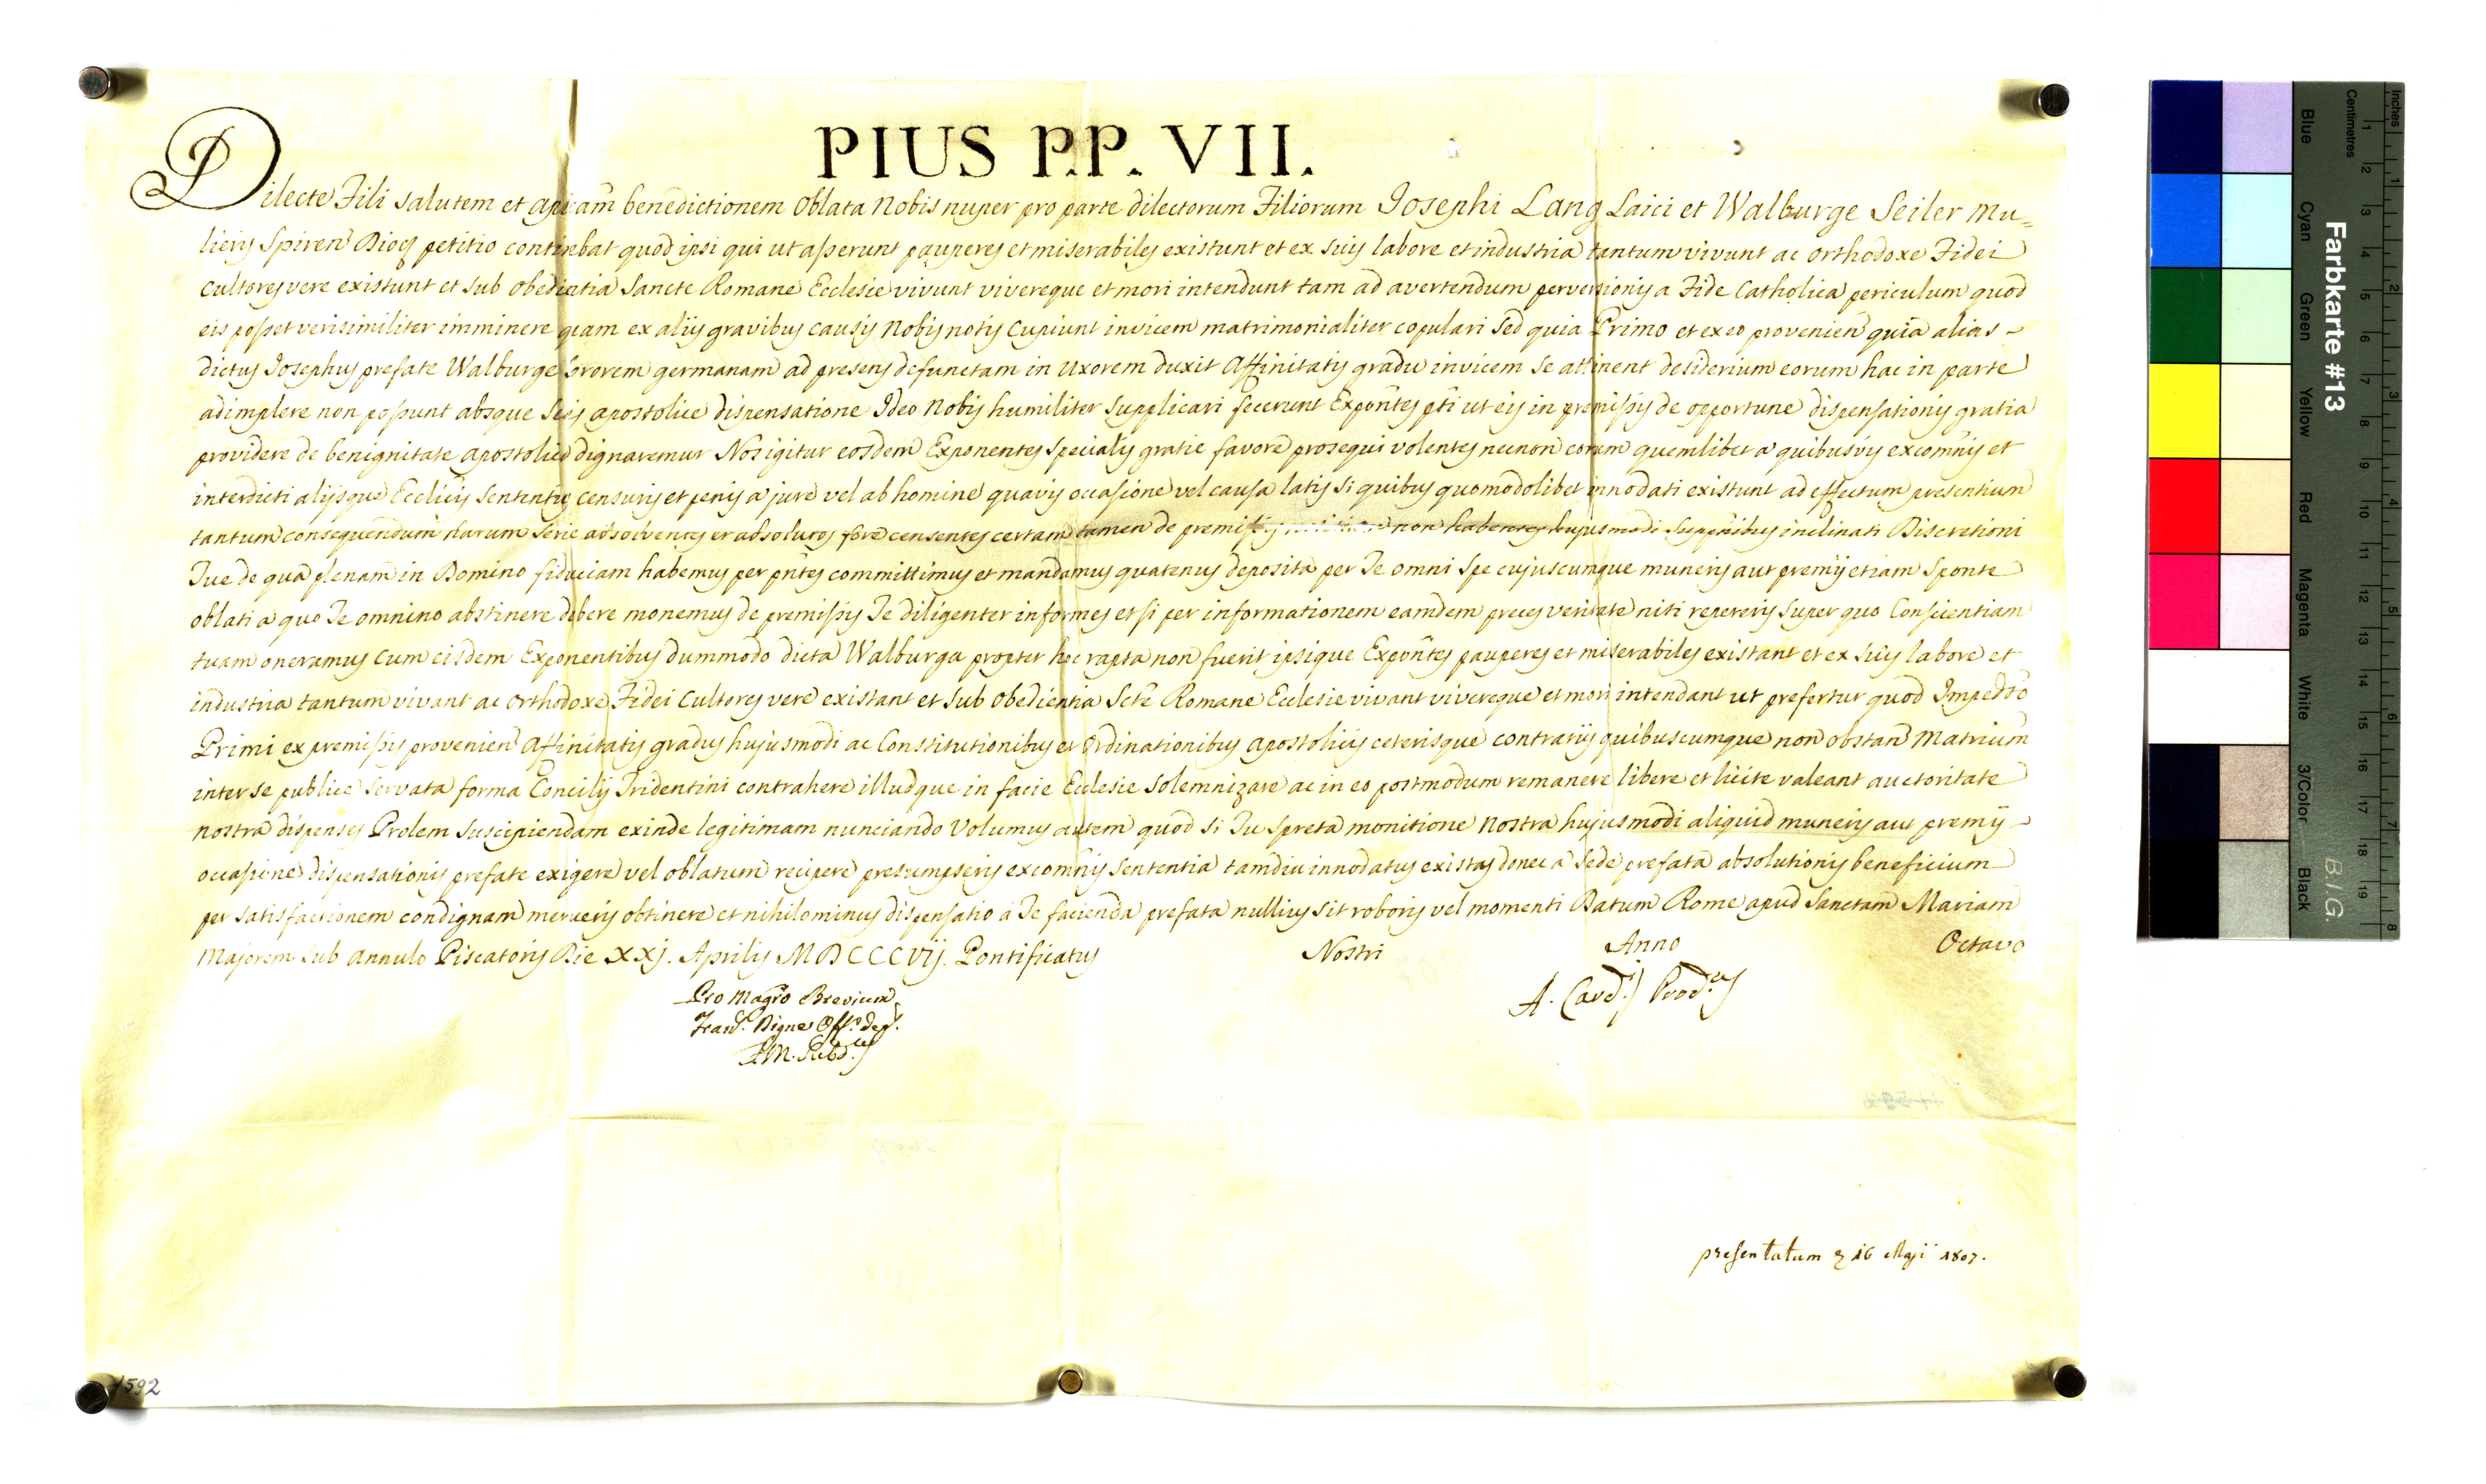 PIUS P.P. VII.
Dilecte Fili salutem et aplicam benedictionem Oblata Nobis nuper pro parte dilectorum Filiorum Josephi Lang Laici et Walburge Seiler Mu=
lieris Spiren Dioc petitio continebat quod ipsi qui ut asserunt pauperes et miserabiles existunt et ex suis labore et industria tantum vivunt ac Orthodoxe Fidei
Cultores vere existunt et sub obedientia Sancte Romane Ecclesie vivunt vivereque et mori intendunt tam ad avertendum perversionis a Fide Catholica periculum quod
eis posset verisimiliter imminere quam ex aliis gravibus causis Nobis notis cupiunt invicem matrimonialiter copulari Sed quia Primo et ex eo provenien quia alias -
dictus Josephus prefate Walburge Sororem germanam ad presens defunctam in Uxorem duxit Affinitatis gradu invicem se attinent desiderium eorum hac in parte
adimplere non possunt absque Sedis apostolice dispensatione Ideo Nobis humiliter supplicari fecerunt Expōntes pti ut eis in premissis de opportune dispensationis gratia
providere de benignitate apostolica dignaremur Nos igitur eosdem Exponentes specialis gratie favore prosequi volentes necnon eorum quemlibet a quibusvis excomnis et
interdicti aliisque Ecclicis Sententiis censuris et penis a jure vel ab homine quavis occasione vel causa latis si quibus quomodolibet innodati existunt ad effectum presentium
tantum consequendum harum serie absolventes et absolutos fore censentes certam tamen de premissis non habentes hujusmodi supponibus inclinati Discretioni
Tue de qua plenam in Domino fiduciam habemus per pntes committimus et mandamus quatenus deposita per Te omni spe cujuscunque muneris aut premij etiam sponte
oblati a quo Te omnino abstinere debere monemus de premissis Te diligenter informes et si per informationem eamdem preces veritate niti repereris super quo Conscientiam
tuam oneramus cum eisdem Exponentibus dummodo dicta Walburga propter hoc rapta non fuerit ipsique Expōntes pauperes et miserabiles existant et ex suis labore et
industria tantum vivant ac Orthodoxe Fidei Cultores vere existant et sub Obedientia Scte Romane Ecclesie vivant vivereque et mori intendant ut prefertur quod Impedto
Primi ex premissis provenien Affinitatis gradus hujusmodi ac Constitutionibus et Ordinationibus apostolicis ceterisque contrariis quibuscumque non obstan Matrium
inter se publice servata forma Concilij Tridentini contrahere illudque in facie Ecclesie solemnizare ac in eo postmodum remanere libere et licite valeant auctoritate
nostra dispenses Prolem suscipiendam exinde legitimam nunciando Volumus autem quod si Tu spreta monitione Nostra hujusmodi aliquid muneris aut premij -
occasione dispensationis prefate exigere vel oblatum recipere presumpseris excomnis sententia tamdiu innodatus existas donec a Sede prefata absolutionis beneficium
per satisfactionem condignam merueris obtinere et nihilominus dispensatio a Te facienda prefata nullius sit roboris vel momenti Datum Rome apud Sanctam Mariam
Majorem sub Annulo Piscatoris Die XXj. Aprilis MDCCCVij. Pontificatus Nostri Anno Octavo
Pro Magro Brevium
A. Card.s Prod.us
presentatum 16 Maji 1807.
1592
Farbkarte #13
B.I.G.
Inches
Centimetres
Blue
Cyan
Green
Yellow
Red
Magenta
White
3/Color
Black
1 2 3 4 5 6 7 8 9 10 11 12 13 14 15 16 17 18 19
1 2 3 4 5 6 7 8